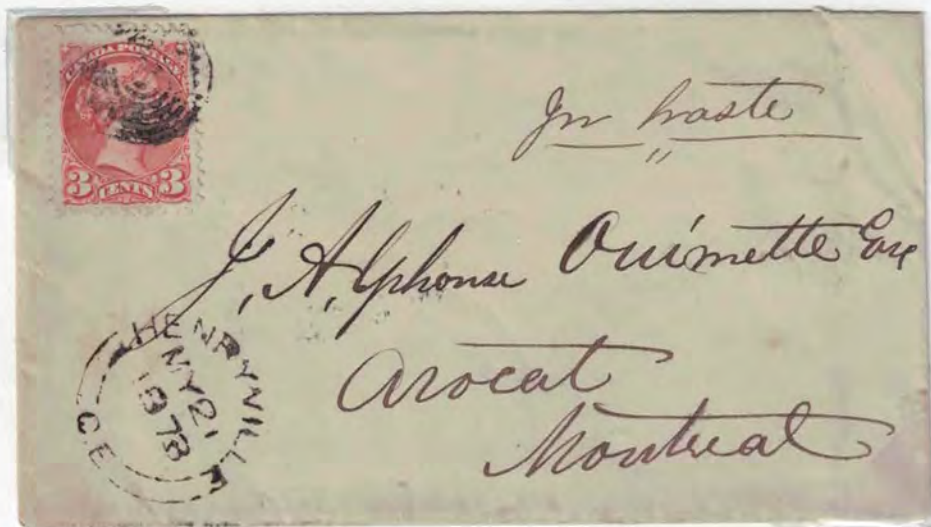 CANADA POSTAGE
3 CENTS 3
In haste
J, A, lphonse Ouimette Esq
Avocat
Montreal
HENRYVILLE
MY 21
1878
C.E